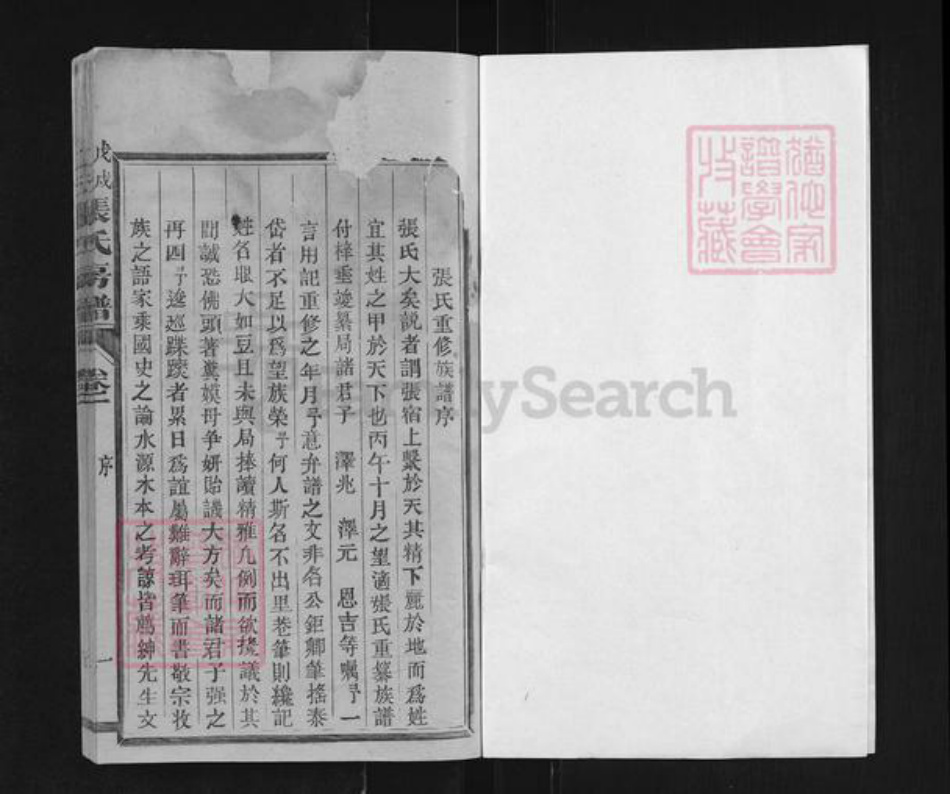 張氏重修族譜序
張氏大矣說者謂張宿上繫於天其精下麗於地而爲姓
宜其姓之甲於天下也丙午十月之望適張氏重纂族譜
付梓重竣纂局諸君子 澤兆 澤元 恩吉等囑予一
言用記重修之年月予意弁譜之文非名公鉅卿筆搖泰
岱者不足以爲望族榮予何人斯名不出里巷筆則纔記
姓名眼大如豆且未與局捧讀精雅凡例而欲攙議於其
間誠恐佛頭著糞嫫母爭妍貽譏大方矣而諸君子强之
再四予逡巡蹀躞者累日爲誼屬難辭珥筆而書敬宗收
族之語家乘國史之論水源木本之考諒皆薦紳先生文
戊戌 張氏房譜 卷一 序 一
猶他家
譜學會
收藏
FamilySearch